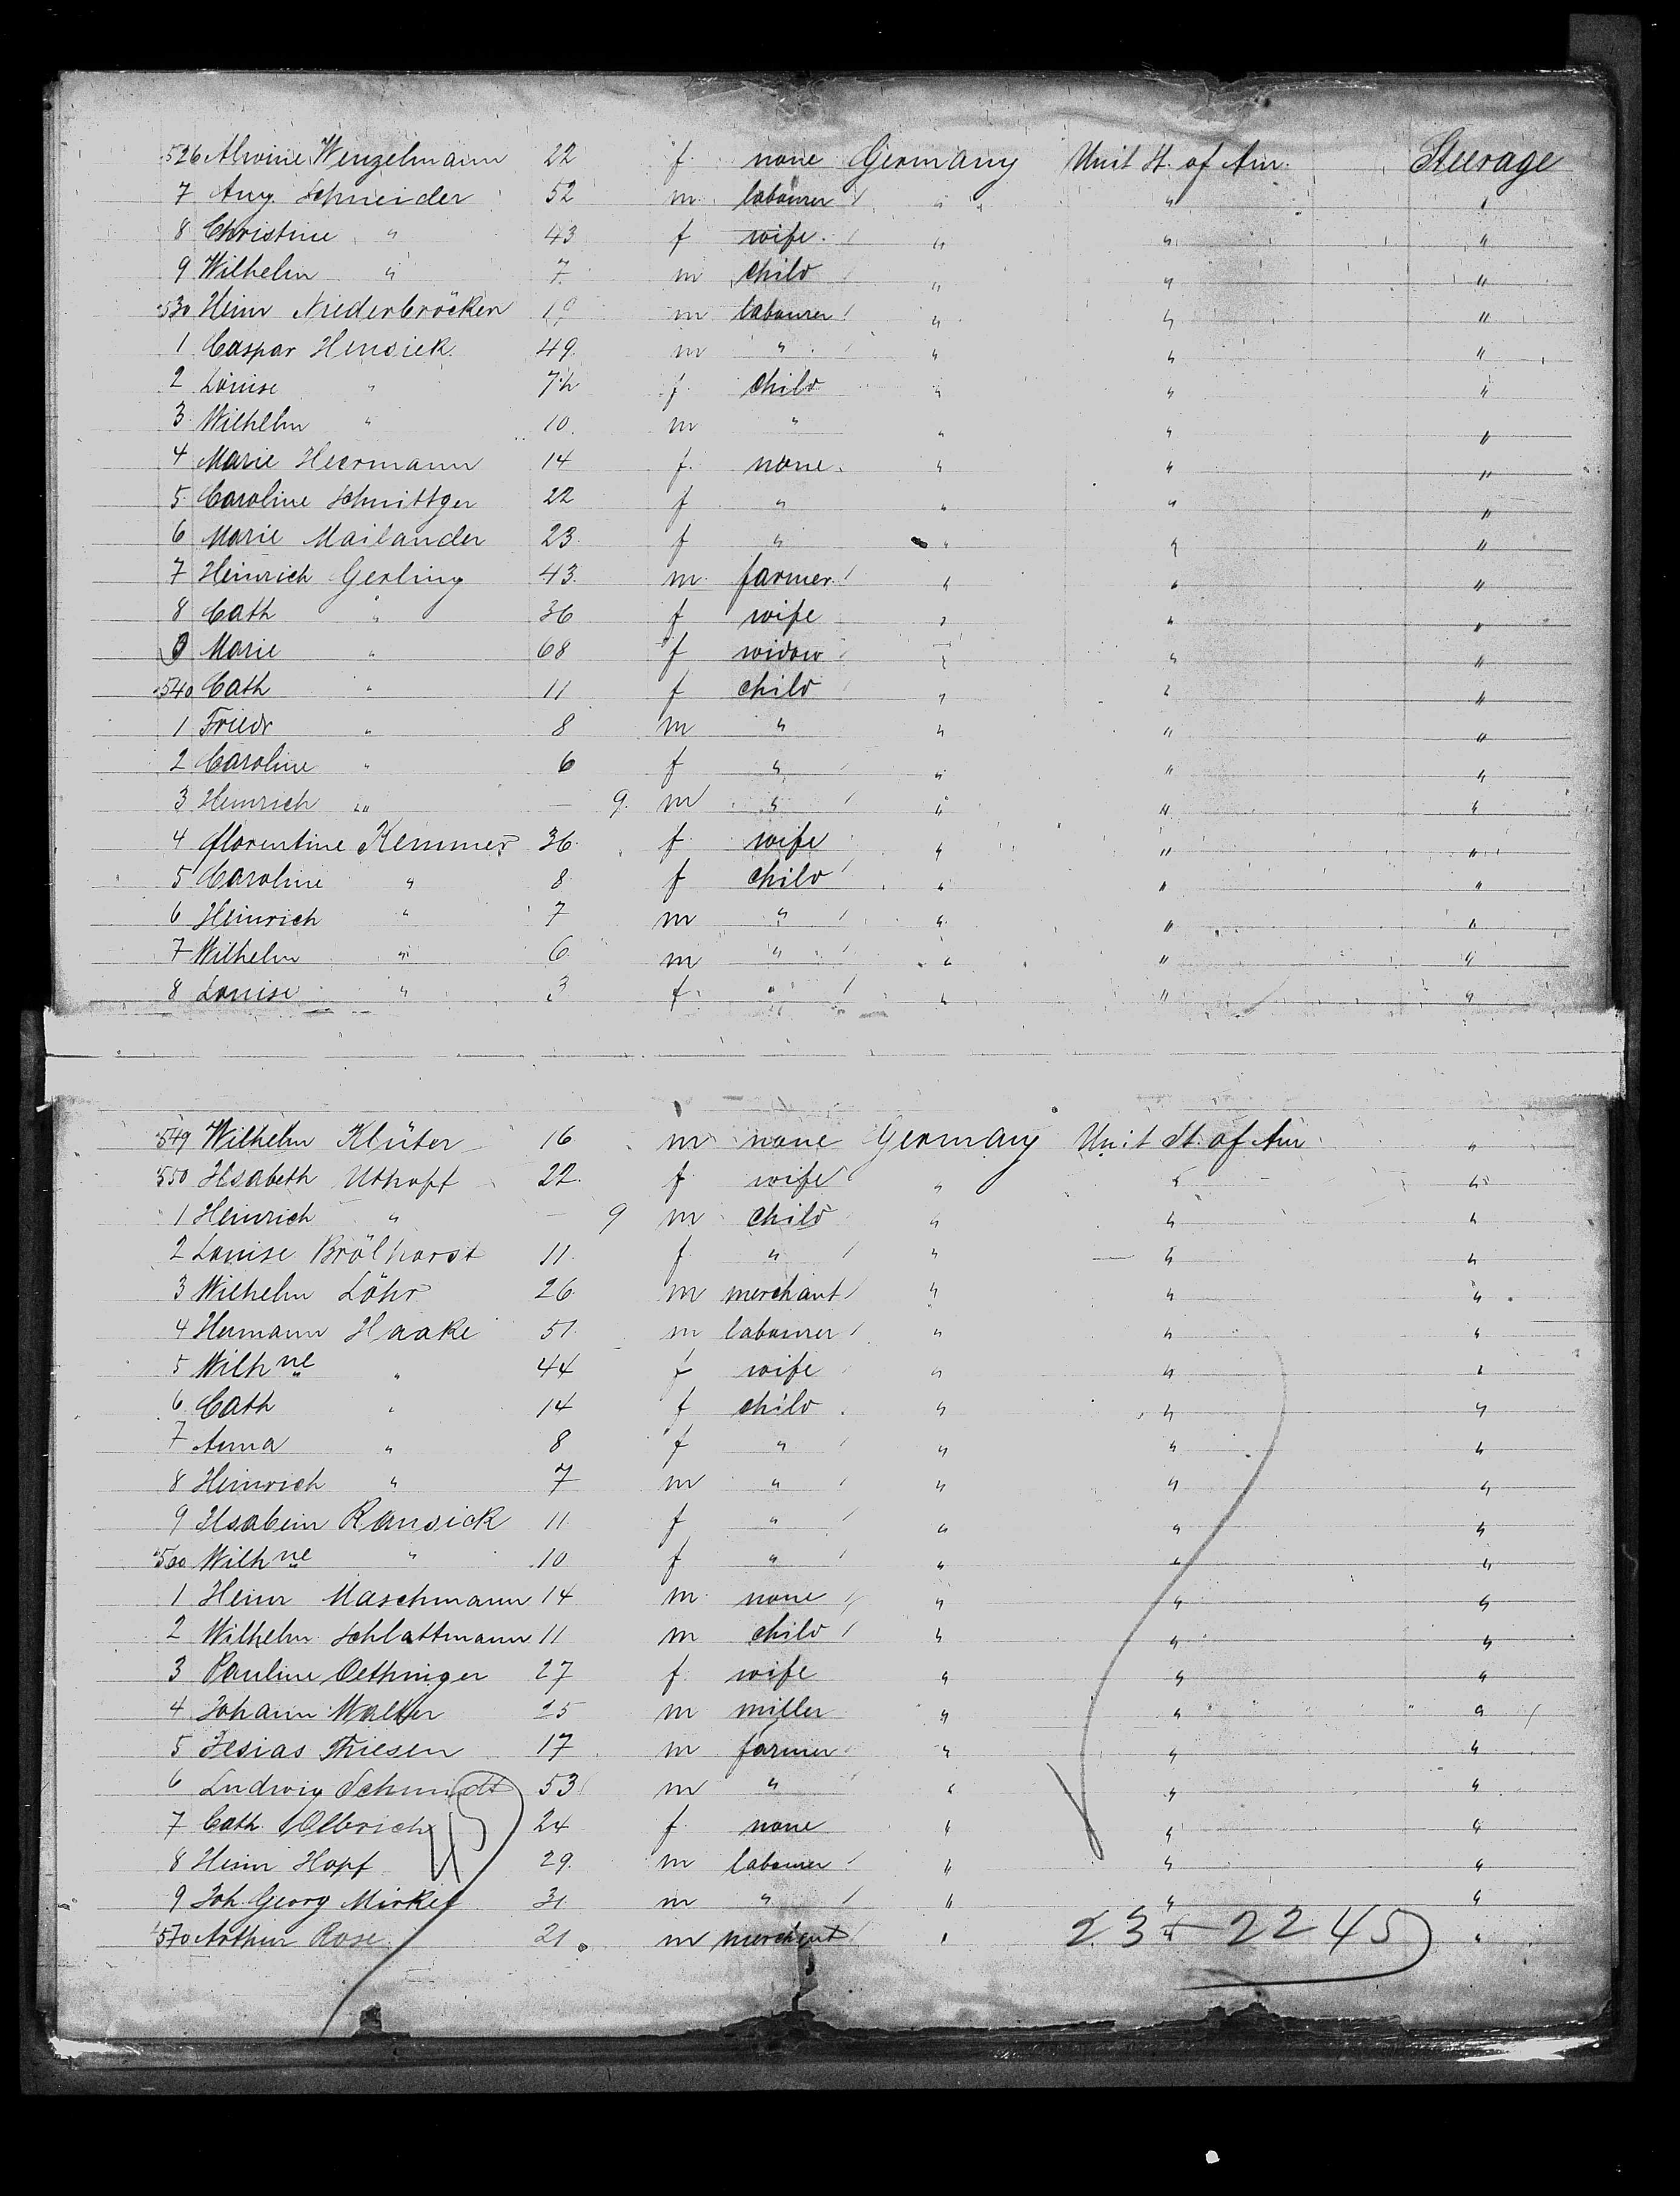 526 Alwine Wenzelmann 22 f. none Germany Unit St. of Am. Steerage
7 Aug Schneider 52 m labourer " " "
8 Christine " 43 f wife " " "
9 Wilhelm " 7 m child " " "
530 Heinr Niederbröcker m labourer " " "
1 Caspar Hensiek 49 m " " " "
2 Louise " f child " " "
3 Wilhelm " 10 m " " " "
4 Marie Heermann 14 f. none " " "
5 Caroline Schnittger 22 f " " " "
6 Marie Mailander 23 f " " " "
7 Heinrich Gerling 43 m farmer " " "
8 Cath " 36 f wife " " "
9 Marie " 68 f widow " " "
540 Cath " 11 f child " " "
1 Friedr " 8 m " " " "
2 Caroline " 6 f " " " "
3 Heinrich " — 9 m " " " "
4 Florentine Kemmer 36 f wife " " "
5 Caroline " 8 f child " " "
6 Heinrich " 7 m " " " "
7 Wilhelm " 6 m " " " "
8 Louise " 3 f " " " "
549 Wilhelm Klüter 16 m none Germany Unit St. of Am "
550 Ilsabeth Uthoff 22 f wife " " "
1 Heinrich " — 9 m child " " "
2 Louise Brölhorst 11 f " " " "
3 Wilhelm Löhr 26 m merchant " " "
4 Hermann Haake 51 m labourer " " "
5 Wilhne " 44 f wife " " "
6 Cath " 14 f child " " "
7 Anna " 8 f " " " "
8 Heinrich " 7 m " " " "
9 Ilsabein Ransiek 11 f " " " "
560 Wilhne " 10 f " " " "
1 Heinr Maschmann 14 m none " " "
2 Wilhelm Schlattmann 11 m child " " "
3 Pauline Oethinger 27 f wife " " "
4 Johann Walter 25 m miller " " "
5 Thiesen 17 m farmer " " "
6 Ludwig Schmidt 53 m " " " "
7 Cath Olbrich 24 f none " " "
8 Heinr Hopf 29 m labourer " " "
9 Joh Georg 31 m " " " "
570 Arthur Rose 21 m merchant " " "
45
23 + 22 45